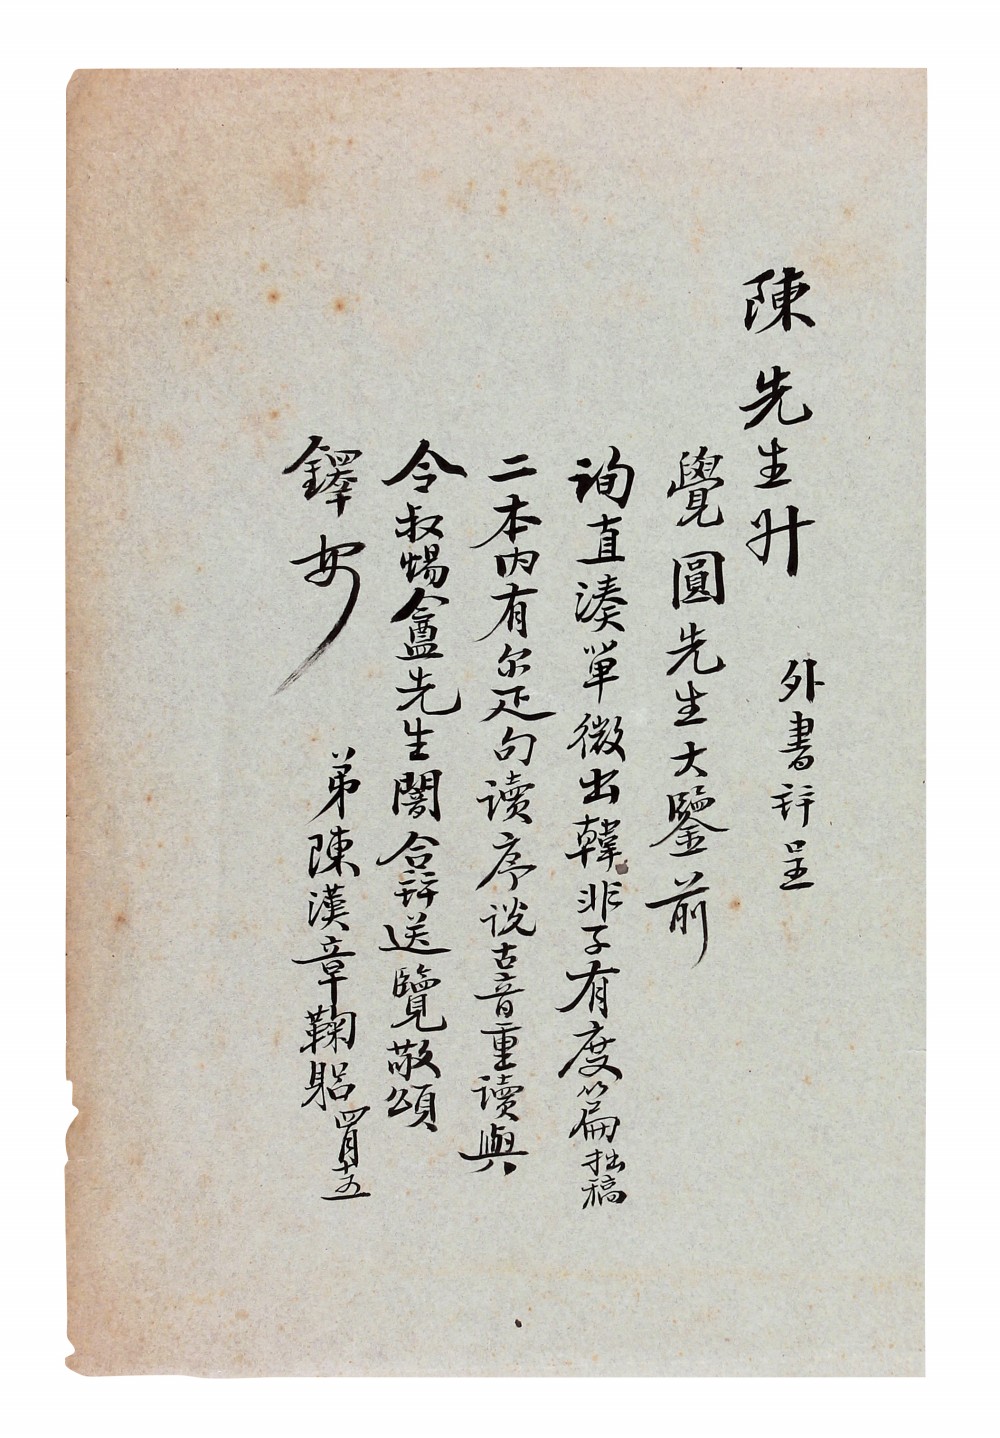 陳先生升
外書並呈
覺圓先生大鑒前
詢直湊單微出韓非子有度篇拙稿
二本内有尔疋句讀序说古音重讀與
令叔惕盦先生闇合並送覽敬頌
鐸安
弟陳漢章鞠躳
四月十五